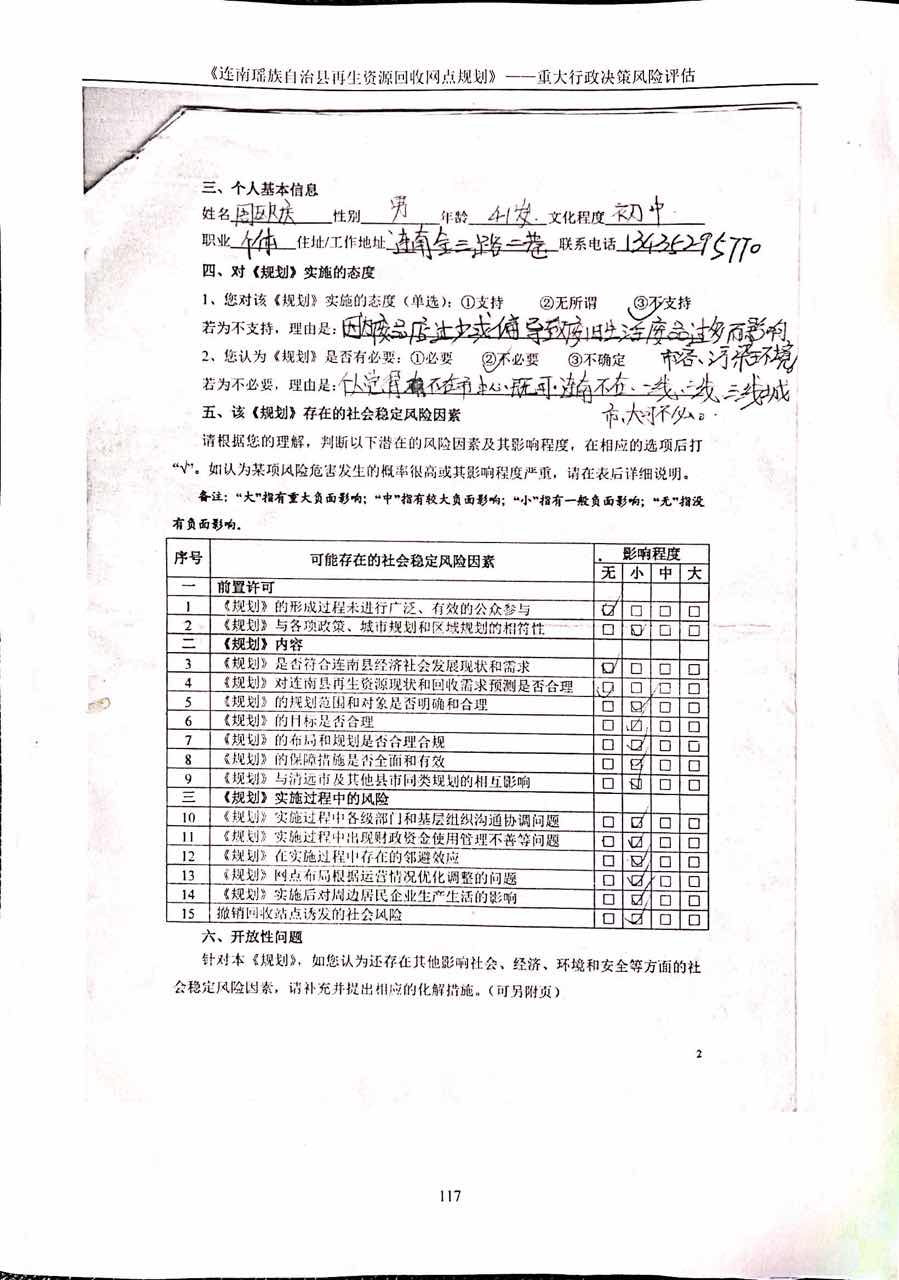 《连南瑶族自治县再生资源回收网点规划》——重大行政决策风险评估
三、个人基本信息
姓名 性别 男 年龄 41岁. 文化程度 初中
职业 个体 住址/工作地址 连南金三路二巷 联系电话 13435295770
四、对《规划》实施的态度
1、您对该《规划》实施的态度（单选）：①支持 ②无所谓 ③不支持
若为不支持，理由是：因为废品店过少或偏导致废旧生活废品过多而影响
市容、污染环境
2、您认为《规划》是否有必要：①必要 ②不必要 ③不确定
若为不必要，理由是： 不在市中心既可.连南不在一线、二线、三线城
市、大可不必。
五、该《规划》存在的社会稳定风险因素
请根据您的理解，判断以下潜在的风险因素及其影响程度，在相应的选项后打
“√”。如认为某项风险危害发生的概率很高或其影响程度严重，请在表后详细说明。
备注：“大”指有重大负面影响；“中”指有较大负面影响；“小”指有一般负面影响；“无”指没
有负面影响。
序号 可能存在的社会稳定风险因素 影响程度
无 小 中 大
一 前置许可
1 《规划》的形成过程未进行广泛、有效的公众参与 ☑ □ □ □
2 《规划》与各项政策、城市规划和区域规划的相符性 □ ☑ □ □
二 《规划》内容
3 《规划》是否符合连南县经济社会发展现状和需求 ☑ □ □ □
4 《规划》对连南县再生资源现状和回收需求预测是否合理 ☑ □ □ □
5 《规划》的规划范围和对象是否明确和合理 □ ☑ □ □
6 《规划》的目标是否合理 □ ☑ □ □
7 《规划》的布局和规划是否合理合规 □ ☑ □ □
8 《规划》的保障措施是否全面和有效 □ ☑ □ □
9 《规划》与清远市及其他县市同类规划的相互影响 □ ☑ □ □
三 《规划》实施过程中的风险
10 《规划》实施过程中各级部门和基层组织沟通协调问题 □ ☑ □ □
11 《规划》实施过程中出现财政资金使用管理不善等问题 □ ☑ □ □
12 《规划》在实施过程中存在的邻避效应 □ ☑ □ □
13 《规划》网点布局根据运营情况优化调整的问题 □ ☑ □ □
14 《规划》实施后对周边居民企业生产生活的影响 □ ☑ □ □
15 撤销回收站点诱发的社会风险 □ ☑ □ □
六、开放性问题
针对本《规划》，如您认为还存在其他影响社会、经济、环境和安全等方面的社
会稳定风险因素，请补充并提出相应的化解措施。（可另附页）
2
117